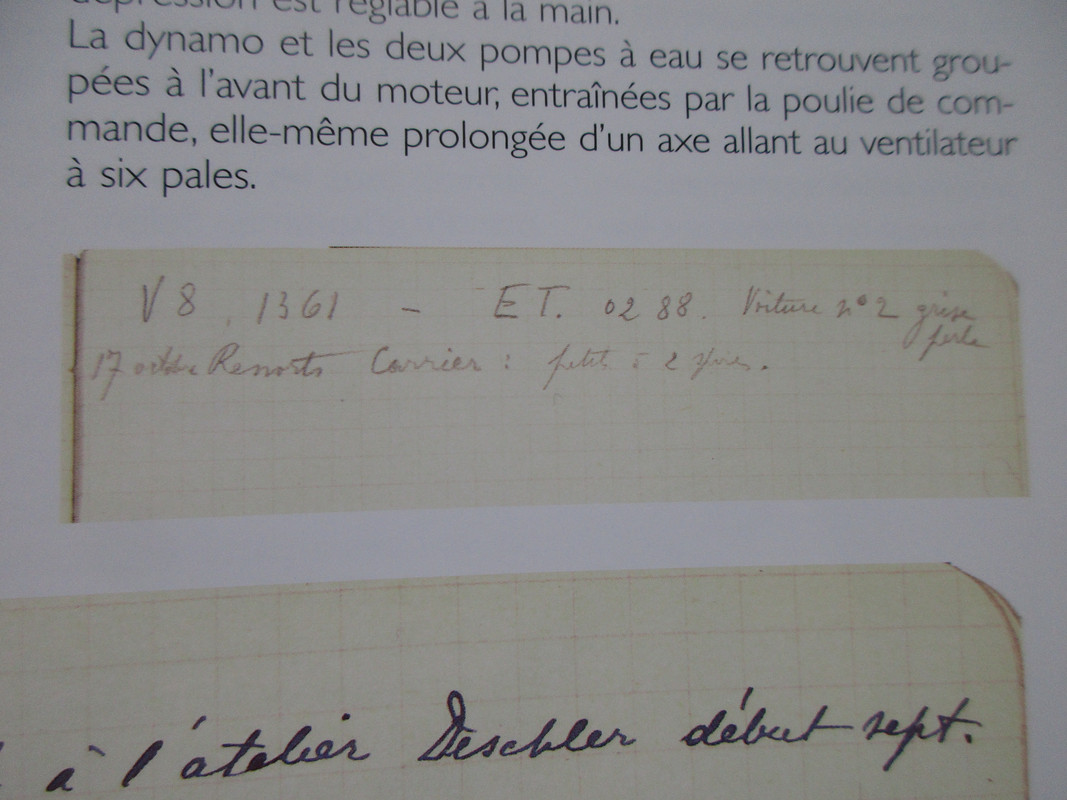 dépression est réglable à la main.
La dynamo et les deux pompes à eau se retrouvent grou-
pées à l'avant du moteur, entraînées par la poulie de com-
mande, elle-même prolongée d'un axe allant au ventilateur
à six pales.
V8. 1361 - ET. 0288. Voiture n° 2 grise
perle
17 octobre Ressorts Courrier : petit à 2
à l'atelier Deschler début sept.